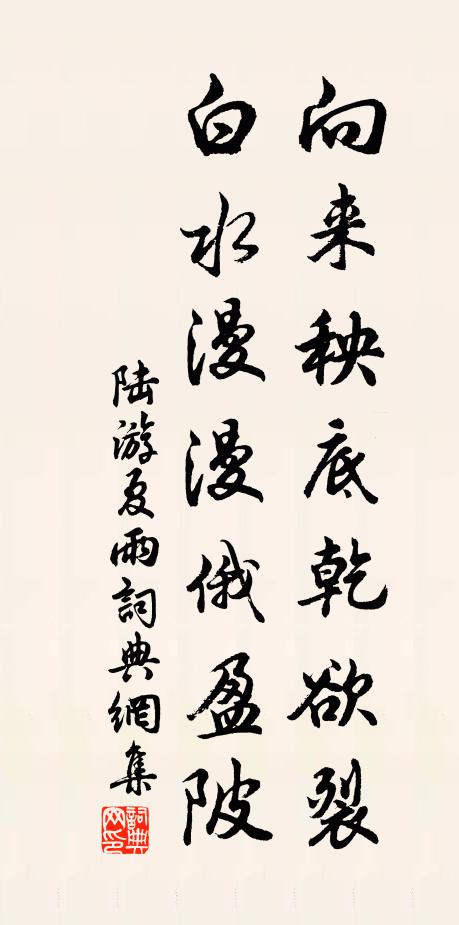 向来秧底乾欲裂
白水漫漫俄盈陂
陆游夏雨詞典網集
詞典網印